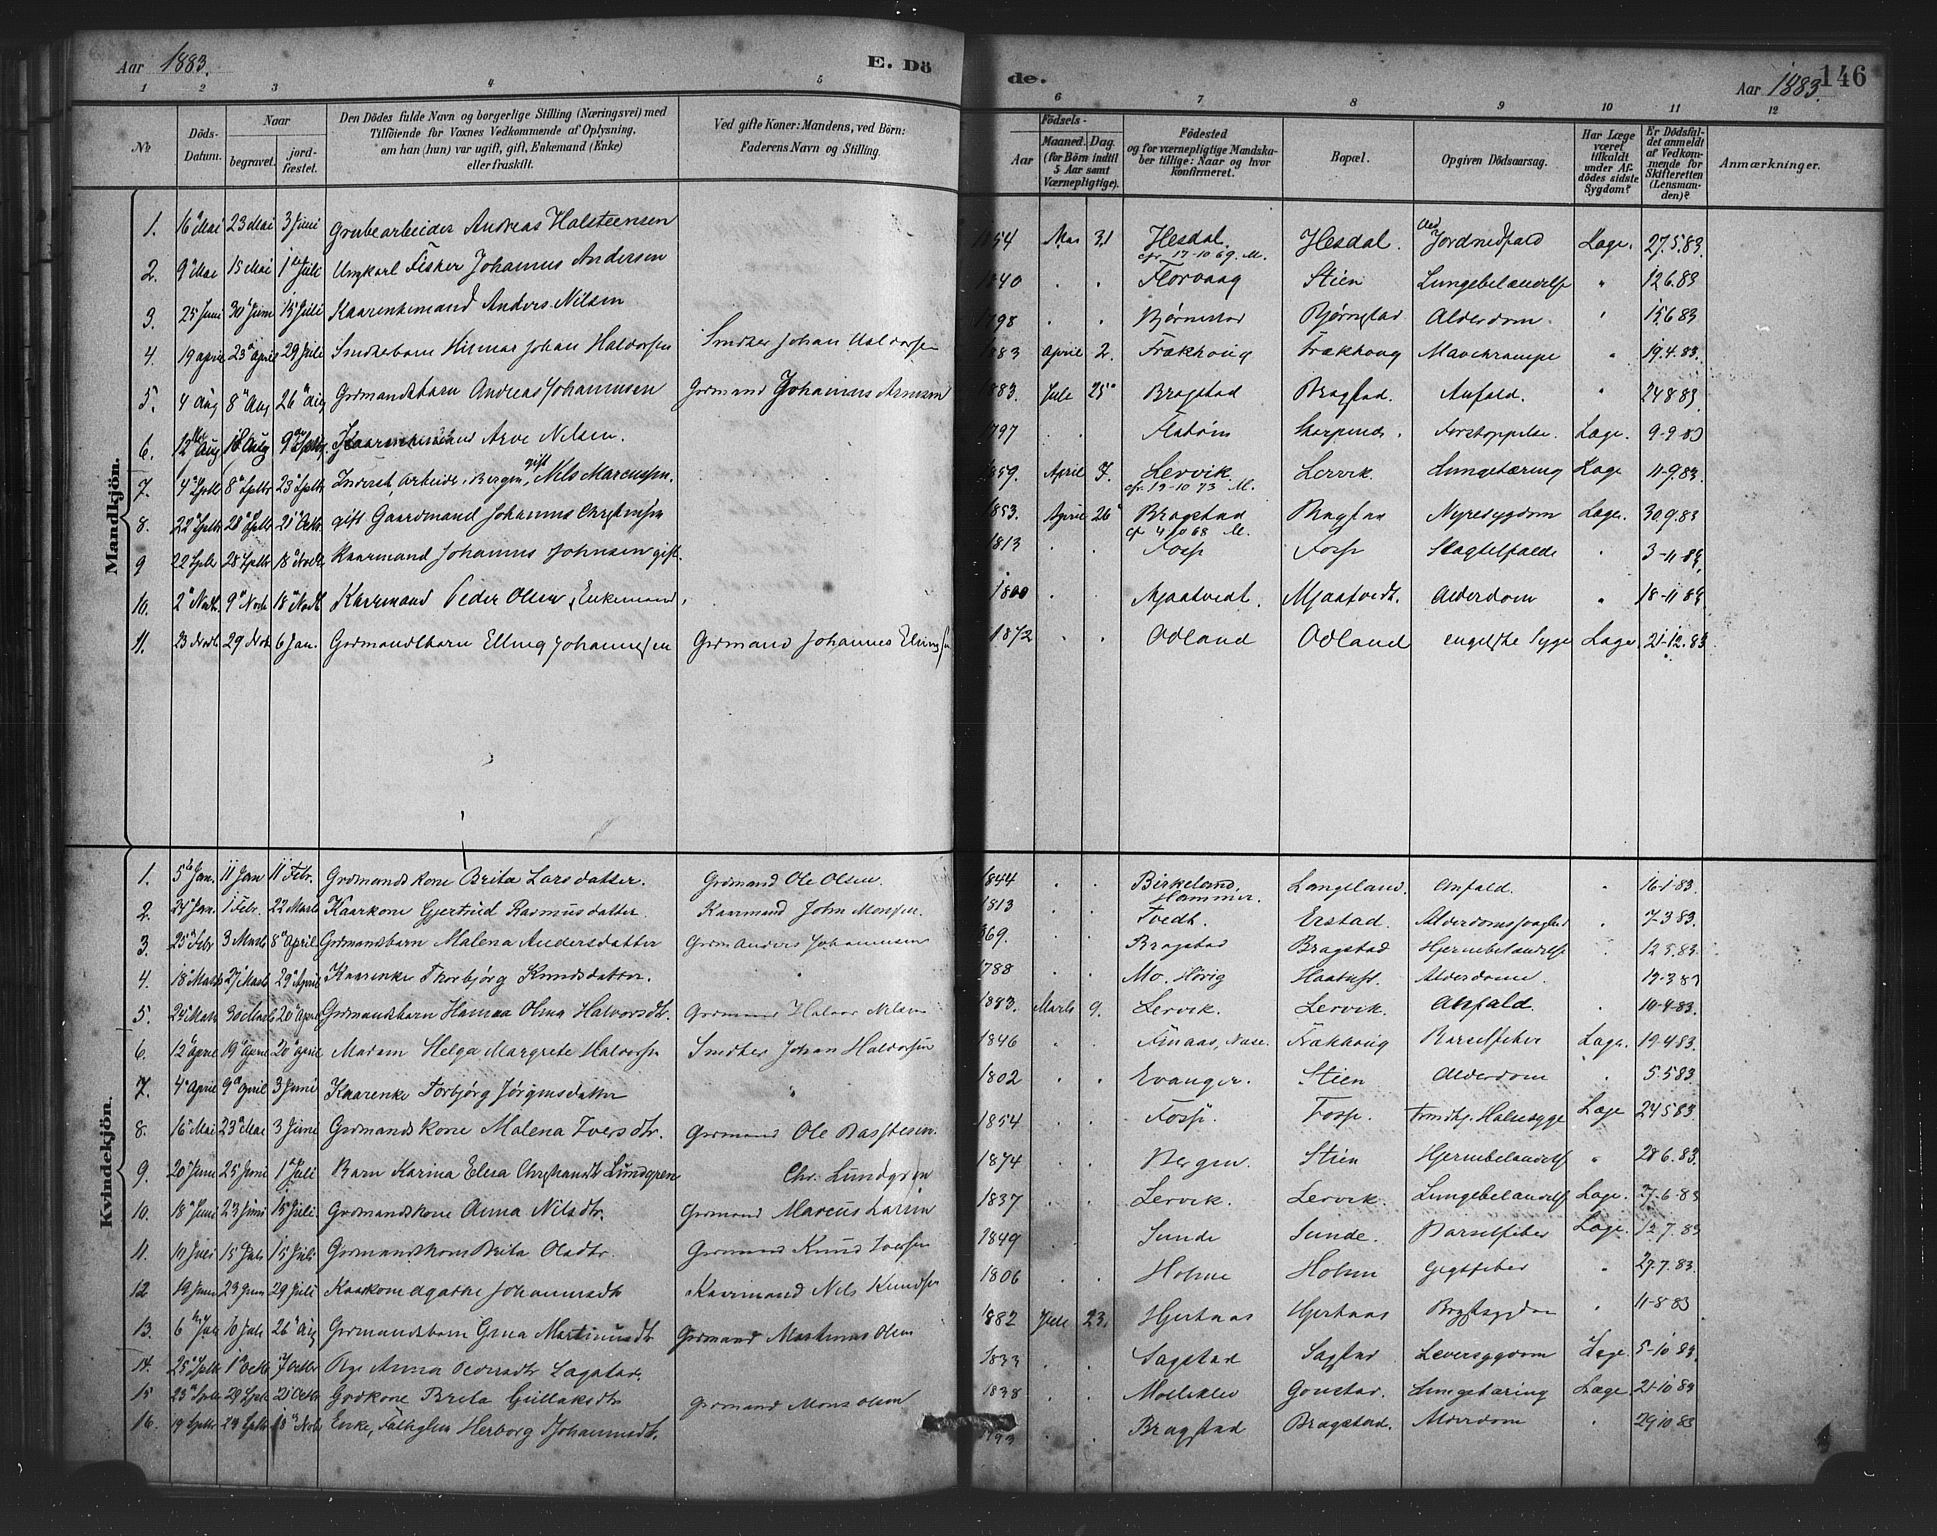 Aar 1883. E. Dö de. Aar 1883. 146
1 2 3 4 5 6 7 8 9 10 11 12
No
Döds-Datum.
Naar begravet. jordfæstet.
Den Dödes fulde Navn og borgerlige Stilling (Næringsvei) med Tilföiende for Voxnes Vedkommende af Oplysning, om han (hun) var ugift, gift, Enkemand (Enke) eller fraskilt.
Ved gifte Koner: Mandens, ved Börn: Faderens Navn og Stilling.
Födsels- Aar Maaned. Dag. (for Börn indtil 5 Aar samt Værnepligtige).
Födested og for værnepligtige Mandskaber tillige: Naar og hvor konfirmeret.
Bopæl.
Opgiven Dödsaarsag.
Har Læge været tilkaldt under Afdödes sidste Sygdom?
Er Dödsfaldet anmeldt af Vedkommende for Skifteretten (Lensmanden)?
Anmærkninger.
Mandkjön.
1. 16 Mai 23 Mai 3 Juni Grubearbeider Andreas Halsteensen 1854 Mai 31 Hesdal. cfr. 17-10 69. M. Hesdal. Ved Jordnedfald Læge. 27.5.83.
2. 9 Mai 15 Mai 1 Juli Ungkarl Fisker Johannes Andersen 1840 . . Florvaag Stien Lungebetændelse " 12 6.83
3. 25 Juni 30 Juni 15 Juli Kaarenkemand Anders Nilsen 1798 . . Bjørnestad Bjørnstad Alderdom " 15 6 83
4. 19 april 23 april 29 Juli Smedbarn Hirmar Johan Haldorsen Smeder Johan Haldorsen 1883 April 2. Frækhoug Frækhoug Mavekrampe " 19.4.83.
5. 4 Aug 8 Aug 26 Aug Grdmandsbarn Andreas Johannesen Grdmand Johannes 1883. Juli 25 Bragstad Bragstad. Anfald. " 24 8 83
6. 12 Aug 18 Aug 9 Septbr. Arve Nilsen. 1797 . . Forstoppelse. Læge. 9-9-83
7. 4 Septb 8 Septbr 23 Septbr Inderst, Arbeider i Bergen, gift Nils Marcussen. 1859. April 7. Lervik. cfr. 19-10 73 M. Lervik. Lungetæring Læge 11-9.83.
8. 22 Septbr 28 Septbr 21 Octbr gift Gaardmand Johannes Christensen 1853. April 26 Bragstad cfr 4 10 68 M. Bragstad Nyresygdom Læge. 30.9.83
9 22 Septbr 28 Septbr 18 Novbr Kaarmand Johannes Johnsen gift. 1813 . . Fosse Fosse Slagtilfælde " 3-11-83.
10. 2 Novb. 9 Novb 18 Novb Kaarmand Peder Olsen, Enkemand. 1800 . . Mjaatvedt. Mjaatvedt. Alderdom " 18-11 83
11. 23 Novb. 29 Nov 6 Jan. Grdmandsbarn Elling Johannessen Grdmand Johannes Ellingsen 1872 . . Odland Odland engelske Syge Læge. 21-12.83
Kvindekjön.
1. 5 Jan. 11 Jan 11 Febr. Grdmandskone Brita Larsdatter. Grdmand Ole Olsen. 1844 . . Birkeland, Hammer. Langeland. Anfald. " 16-1-83.
2. 1 Febr. 22 Marts Kaarkone Gjertrud Rasmusdatter. Kaarmand John Monsen. 1813 . . Tvedt. Erstad. Alderdomssvaghed " 7-3 83.
3. 25 Febr 3 Marts 8 April Grdmandsbarn Malena Andersdatter Grdm Anders Johannesen 1869. . . Bragstad Bragstad Hjernebetændelse " 12 5.83.
4. 18 Marts 27 Marts 29 April Kaarenke Thorbjørg Knudsdatter. " 1788 . . Mo. Hosvig Alderdom. " 19-3 83
5. 24 Marts 30 Marts 20 April Grdmandsbarn Hanna Olina Halvorsdtr. Grdmand Halvor Nilsen 1883. Marts 9. Lervik. Lervik. Anfald. " 10-4-83.
6. 12 April 19 April 20 April Madam Helga Margrete Haldorsen Smeder Johan Haldorsen 1846 . . Frækhoug Barselfeber Læge. 19 4 83.
7. 4 April 9 April 3 Juni Kaarenke Torbjørg Jørgensdatter " 1802 . . Evanger. Stien. Alderdom " 5 5 83
8. 16 Mai 23 Mai 3 Juni Grdmandskone Malena Iversdtr. Grdmand Ole 1854 . . Fosse. Fosse. Halssyge Læge 24 5 83
9. 20 Juni 25 Juni 1 Juli Barn Karina Elisa Christiansdtr Lundgren Chr. Lundgren 1874 . . Bergen. Stien Hjernebetændelse " 28 6.83.
10. 18 Juni 23 Juni 15 Juli. Grdmandskone Anna Nilsdtr. Grdmand Marcus Larsen 1837 . . Lervik. Lervik. Lungebetændelse Læge. 27-6-83
11. 10 Juli 15 Juli 15 Juli Grdmandskone Brita Olsdtr. Grdmand Knud Iversen 1849 . . Sunde Sunde. Barselfeber Læge. 12-7.83
12 19 Juni 23 Juni 29 Juli Kaarkone Agathe Johannesdtr Kaarmand Nils Knudsen 1806 . . Holme Holme Gigtfeber " 29.7.83.
13. 6 Juli 10 Juli 26 Aug Grdmandsbarn Martinusdtr Grdmand Martinus Olsen 1882 Juli 23. Hjertaas Hjertaas Brystsygdom " 11-8 83
14. 25 Septbr 1 Octb 7 Octbr Pige Anna Pedersdtr Sagstad. 1833 . . Sagstad Sagstad Leversygdom Læge. 5-10 83.
15 23 Septbr 29 Septbr 21 Octbr Grdkone Brita Gullaksdtr Grdmand Mons Olsen 1838 . . Lungetæring Læge 21-10 83
16. 19 Septbr 24 Septbr 18 Novb Enke, Fattiglem Herborg Johannesdtr. 1793 . . Bragstad Bragstad. Alderdom " 29 10 83